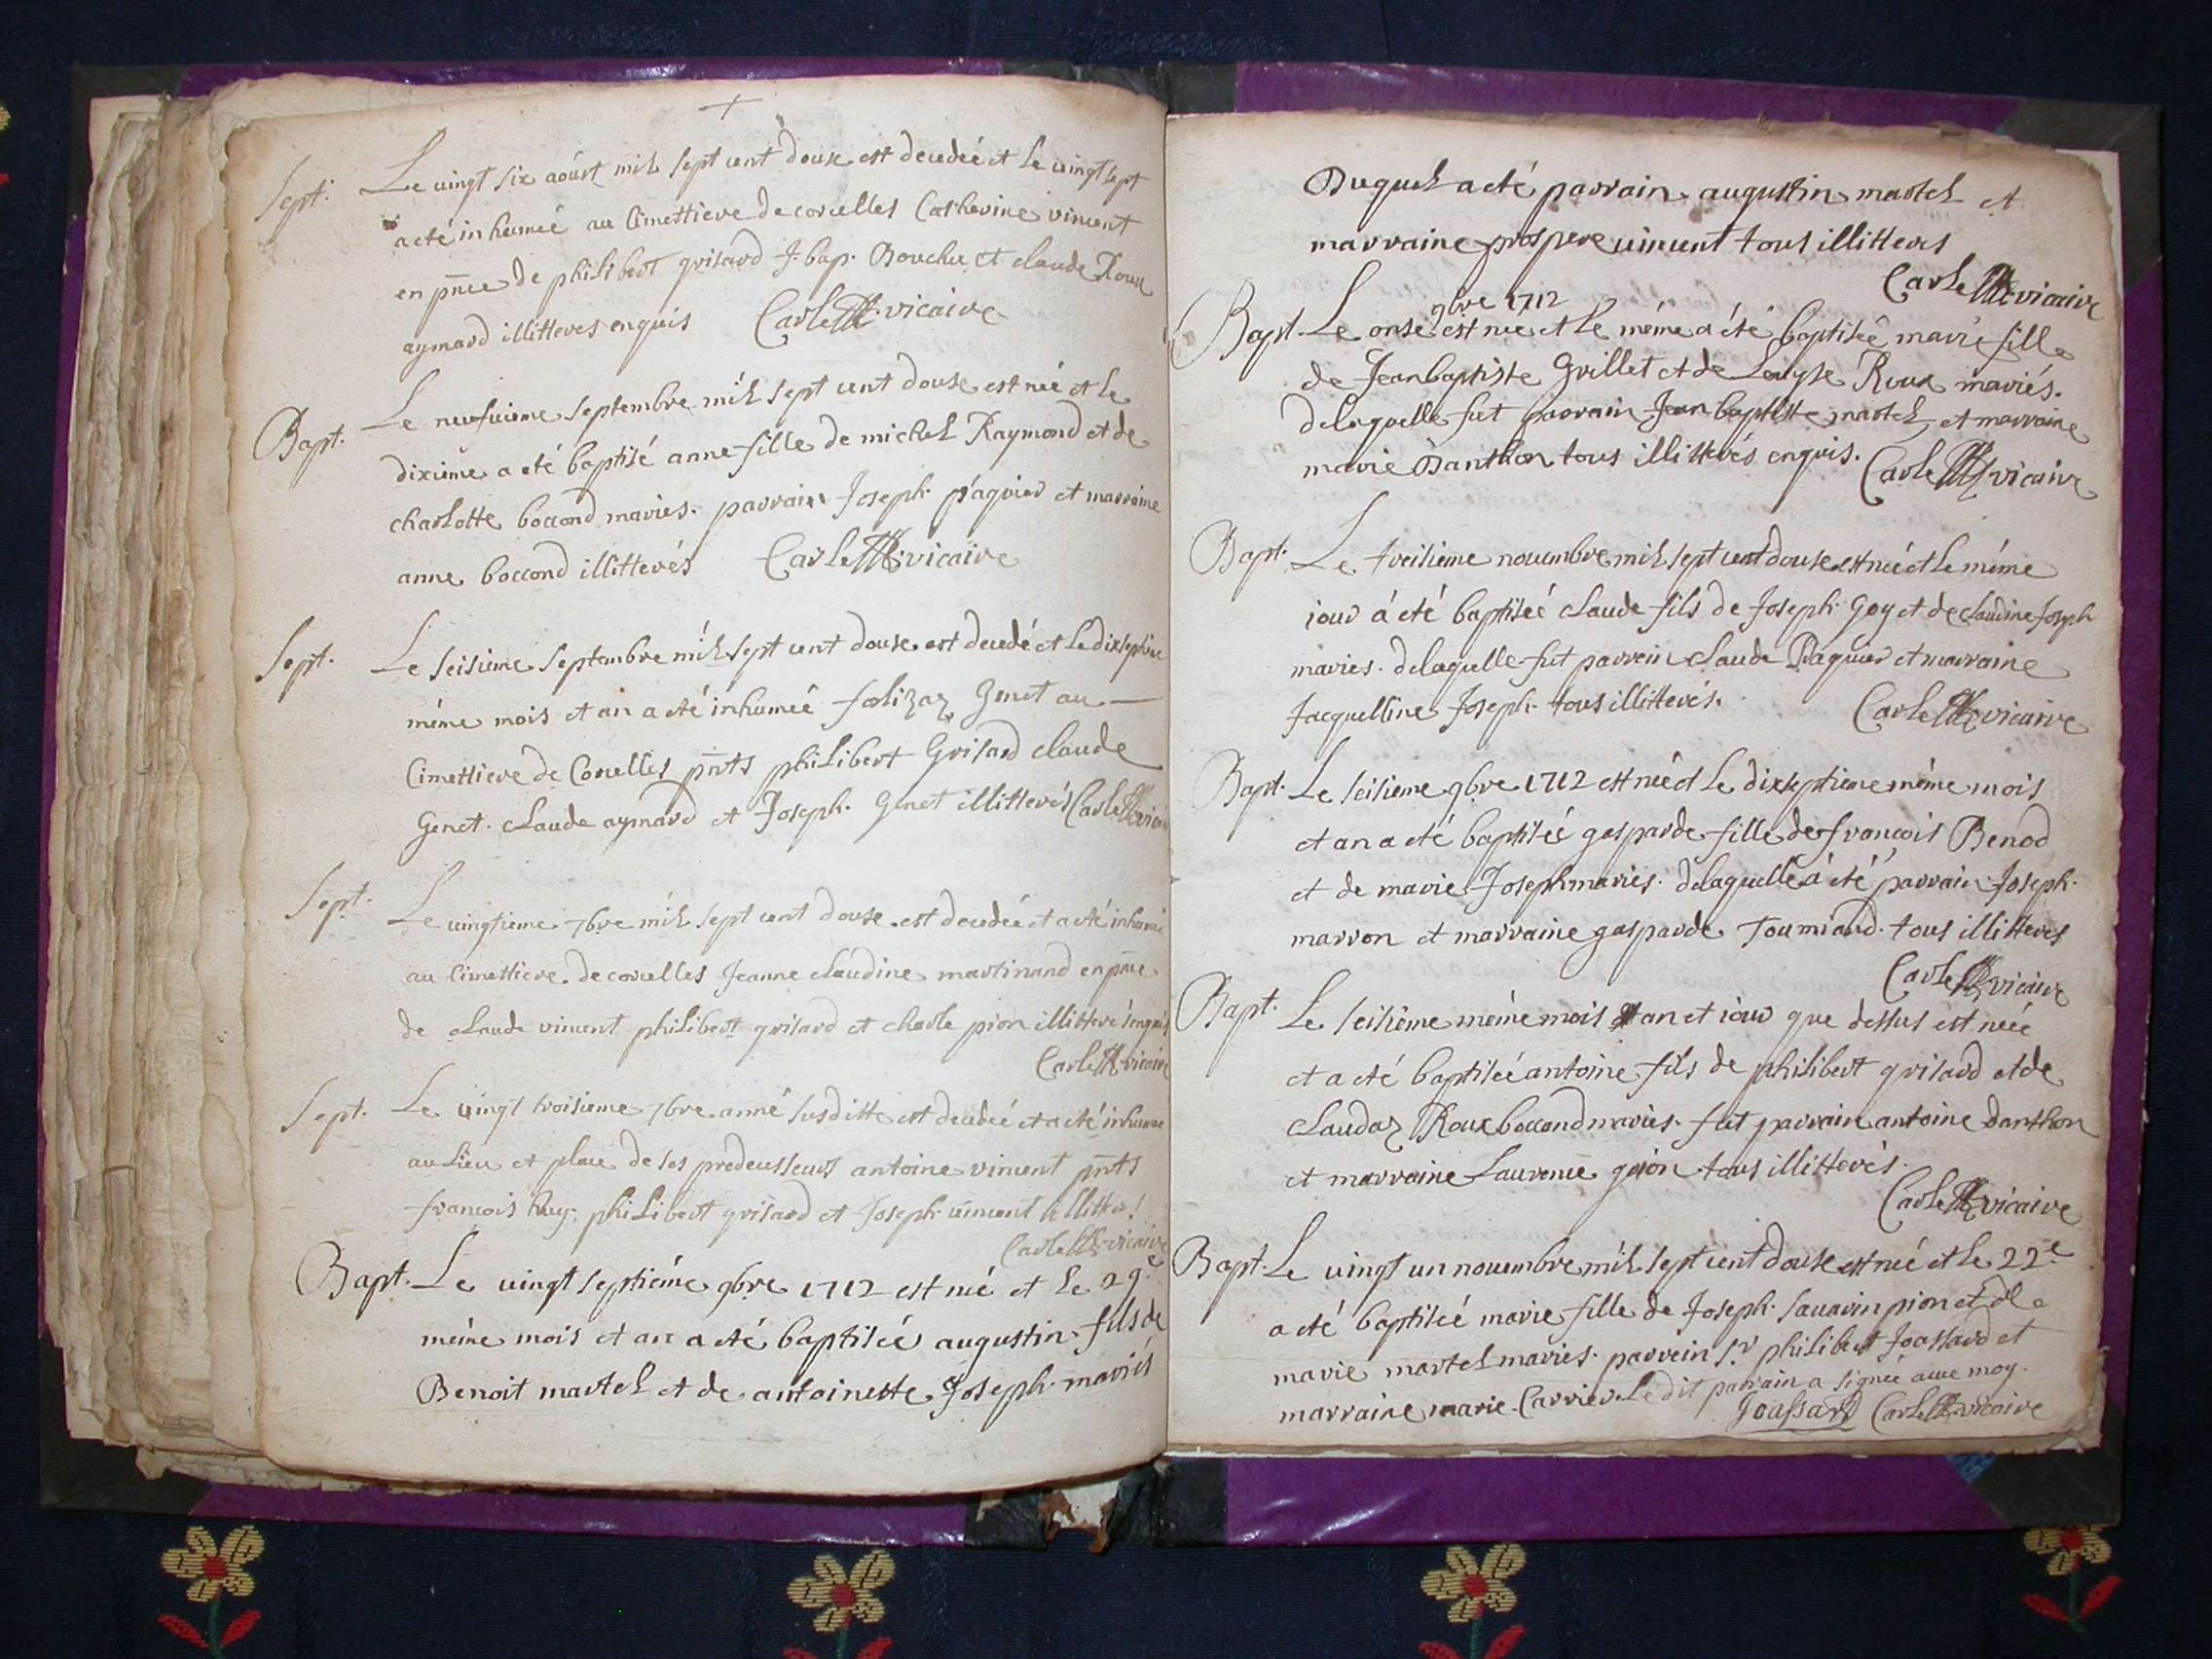 Sept. Le vingt six aoust mil sept cent douse est decedeé et le vingt sept
a eté inhumeé au Cimettiere de corcelles Catherine vincent
en pnce de philibert grisard J. bap. Bouchu et claude Roux
aymard illitteres enquis Carle vicaire
Bapt. Le neufuieme septembre mil sept cent douse est neé et le
dixieme a eté baptisé anne fille de michel Raymond et de
charlotte boccond mariés. parrain Joseph paquier et marraine
anne boccond illitterés Carle vicaire
Sept. Le seisieme septembre mil sept cent douse est decedé et le dixseptieme
méme mois et an a eté inhumeé Genet au
Cimettiere de Corcelles pnts philibert Grisard claude
Genet. claude aymard et Joseph. Genet illitterés Carle vicaire
Sept. Le vingtieme 7bre mil sept cent douse est decedeé et a eté inhumeé
au Cimettiere de corcelles Jeanne claudine martinand en pnce
de claude vincent philibert grisard et charle pion illitterés enquis
Carle vicaire
Sept. Le vingt troisieme 7bre anné susditte est decedeé et a eté inhumé
au Lieu et place de ses predecesseurs antoine vincent pnts
francois huy. philibert grisard et Joseph vincent illitter.
Carle vicaire
Bapt. Le vingt septiéme 9bre 1712 est né et le 29e
méme mois et an a eté baptiseé augustin fils de
Benoit martel et de antoinette Joseph mariés
Duquel a eté parrain augustin martel et
marraine prospere vincent tous illitteres
Carle vicaire
9bre 1712
Bapt. Le onse est neé et le méme a été baptiseé marie fille
de Jean baptiste Grillet et de Leuyse Roux mariés.
delaquelle fut parrain Jean baptiste martel et marraine
marie Danthon tous illitterés enquis. Carle vicaire
Bapt. Le treisieme nouembre mil sept cent douse est né et le méme
iour á eté baptiseé claude fils de Joseph Goy et de claudine Joseph
maries. delaquelle fut parrein claude Paquier et marraine
Jacquelline Joseph tous illitterés. Carle vicaire
Bapt. Le seisieme 9bre 1712 est neé et Le dixseptieme méme mois
et an a eté baptiseé gasparde fille de francois Benod
et de marie Joseph mariés. delaquelle á eté parrain Joseph.
marron et marraine gasparde Toumiand. tous illitteres
Carle vicaire
Bapt. Le seisiéme méme mois et an et iour que dessus est neé
et a eté baptiseé antoine fils de philibert grisard et de
claudaz Roux boccond mariés. fut parrain antoine danthon
et marraine Laurence tous illitterés.
Carle vicaire
Bapt. Le vingt un nouembre mil sept cent douse est neé et le 22e
a eté baptiseé marie fille de Joseph. sauarin pion et de
marie martel mariés. parrein sr. philibert Joassard et
marraine marie Carrier. Le dit parrain a signeé auec moy.
Joassard Carle vicaire